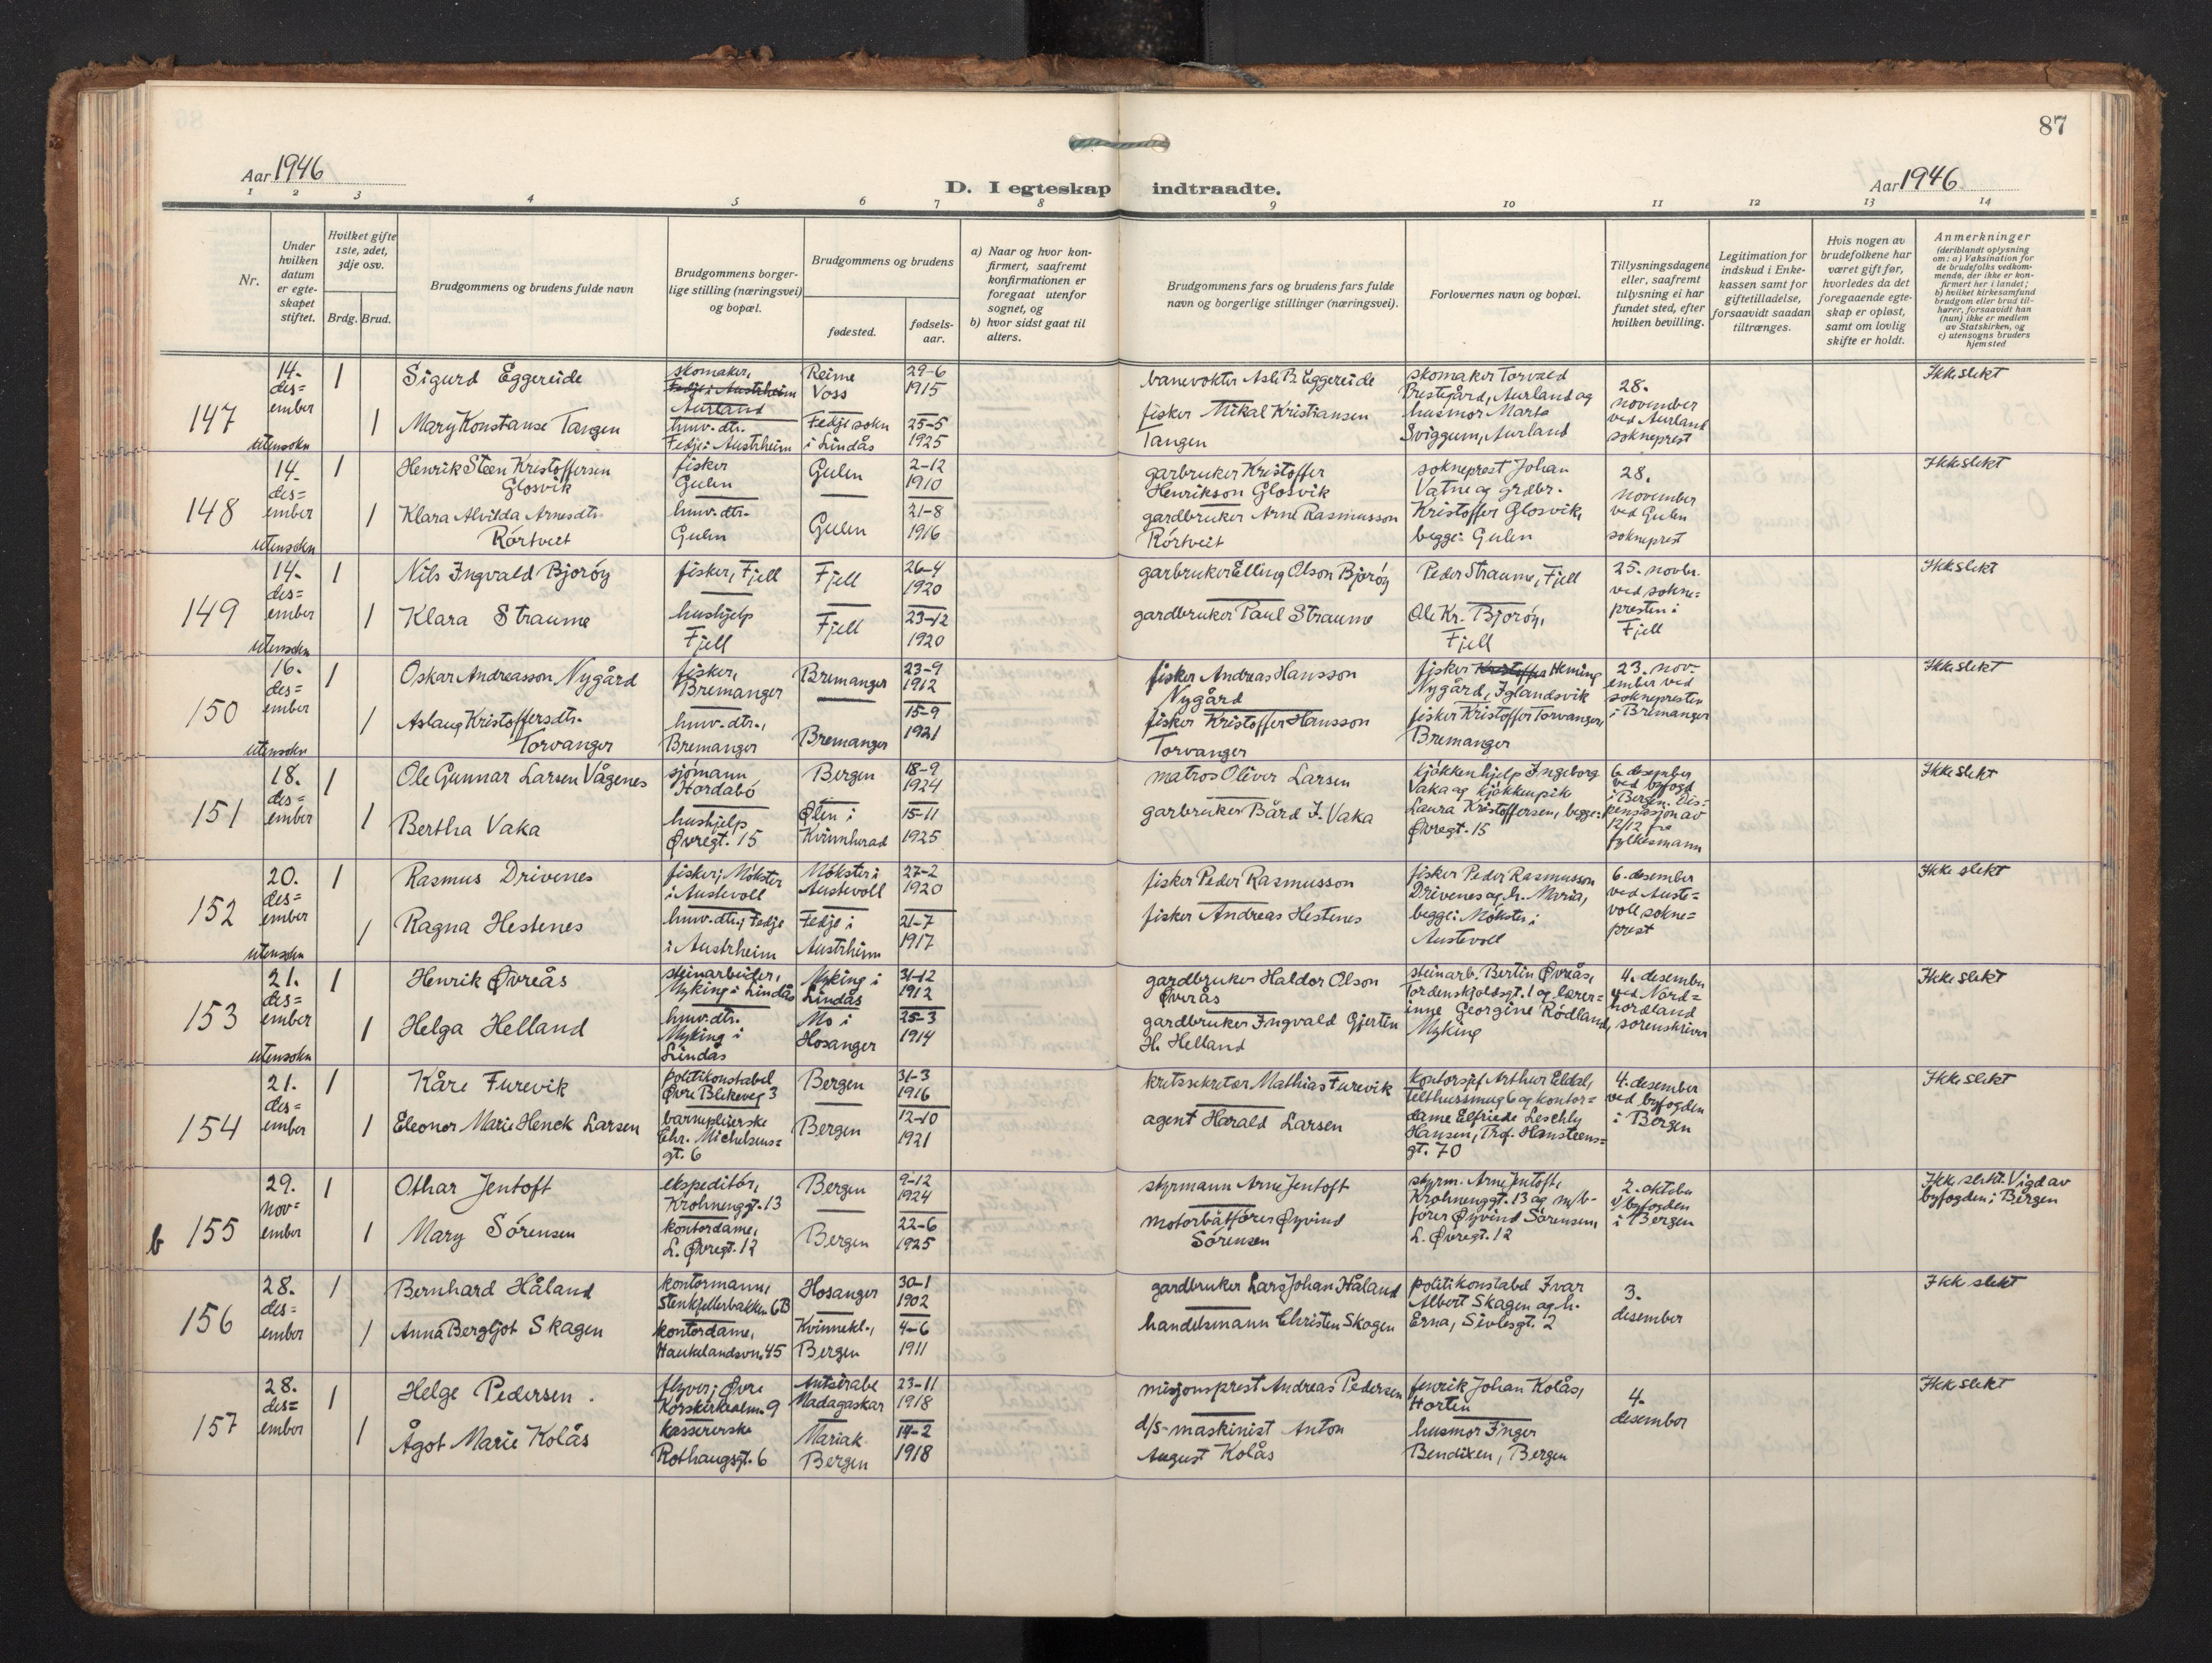 87
Aar 1946
D. I egteskap indtraadte.
Aar 1946
1 2 3 4 5 6 7 8 9 10 11 12 13 14
Nr.
Under hvilken datum er egteskapet stiftet.
Hvilket gifte 1ste, 2det, 3dje osv.
Brdg. Brud.
Brudgommens og brudens fulde navn
Brudgommens borgerlige stilling (næringsvei) og bopæl.
Brudgommens og brudens
fødested.
fødselsaar.
a) Naar og hvor konfirmert, saafremt konfirmationen er foregaat utenfor sognet, og
b) hvor sidst gaat til alters.
Brudgommens fars og brudens fars fulde navn og borgerlige stillinger (næringsvei).
Forlovernes navn og bopæl.
Tillysningsdagene eller, saafremt tillysning ei har fundet sted, efter hvilken bevilling.
Legitimation for indskud i Enkekassen samt for giftetilladelse, forsaavidt saadan tiltrænges.
Hvis nogen av brudefolkene har været gift før, hvorledes da det foregaaende egteskap er opløst, samt om lovlig skifte er holdt.
Anmerkninger
(deriblandt oplysning om: a) Vaksination for de brudefolks vedkommende, der ikke er konfirmert her i landet; b) hvilket kirkesamfund brudgom eller brud tilhører, forsaavidt han (hun) ikke er medlem av Statskirken, og c) utensogns bruders hjemsted
147 utensokn
14. desember
1 Sigurd Eggereide
skomaker, Fedje i Austrheim Aurland
Reime Voss
29-6 1915
banevokter Asle B. Eggereide
skomaker Torvald Prestegård, Aurland og husmor Marta Sviggum, Aurland
28. november ved Aurland sokneprest
Ikke slekt
1 Mary Konstanse Tangen
huuv.dtr. Fedje i Austrheim
Fedje sokn i Lindås
25-5 1925
fisker Mikal Kristiansen Tangen
148 utensokn
14. desember
1 Henrik Steen Kristoffersen Glosvik
fisker Gulen
Gulen
2-12 1910
garbruker Kristoffer Henrikson Glosvik
sokneprest Johan Vatne og grdbr. Kristoffer Glosvik, begge i Gulen
28. november ved Gulen sokneprest
Ikke slekt
1 Klara Alvilda Arnesdtr. Körtveit
huuv.dtr. Gulen
Gulen
21-8 1916
gardbruker Arne Rasmusson Körtveit
149 utensokn
14. desember
1 Nils Ingvald Bjoröy
fisker, Fjell
Fjell
26-4 1920
garbruker Elling Olson Bjoröy
Peder Straume, Fjell
25. novbr. ved sognepresten i Fjell
Ikke slekt
1 Klara Straume
hushjelp Fjell
Fjell
23-12 1920
gardbruker Paul Straume
Ole Kr. Bjoröy, Fjell
150 utensokn
16. desember
1 Oskar Andreasson Nygård
fisker, Bremanger
Bremanger
23-9 1912
fisker Andreas Hansson Nygård
fisker Kristoffer Heming Nygård, Iglandsvik
23. november ved soknepresten i Bremanger
Ikke slekt
1 Aslaug Kristoffersdtr. Torvanger
huuv.dtr., Bremanger
Bremanger
15-9 1921
fisker Kristoffer Hansson Torvanger
fisker Kristoffer Torvanger, Bremanger
151
18. desember
1 Ole Gunnar Larsen Vågenes
sjömann Hordabö
Bergen
18-9 1924
matros Oliver Larsen
kjökkenhjelp Ingeborg Vaka og kjökkenpike Laura Kristoffersen, begge: Øvregt. 15
6. desember ved byfogd i Bergen. Dispensasjon av 12/12 fra fylkesmann
Ikke slekt
1 Bertha Vaka
hushjelp Øvregt. 15
Ølen i Kvinnherad
15-11 1925
garbruker Bård J. Vaka
152 utensokn
20. desember
1 Rasmus Drivenes
fisker, Mökster i Austevoll
Mökster i Austevoll
27-2 1920
fisker Peder Rasmusson
fisker Peder Rasmusson Drivenes og h. Maria, begge: Mökster i Austevoll
6. desember ved Austevoll sokneprest
Ikke slekt
1 Ragna Hestenes
huuv.dtr., Fedje i Austrheim
Fedje i Austrheim
21-7 1917
fisker Andreas Hestenes
153 utensokn
21. desember
1 Henrik Øvreås
steinarbeider, Myking i Lindås
Myking i Lindås
31-12 1912
gardbruker Haldor Olson Øvreås
steinarb. Bertin Øvreås, Tordenskjoldsgt. 1 og lærerinne Georgine Rödland, Myking
4. desember ved Nordhordland sorenskriver
Ikke slekt
1 Helga Helland
huuv.dtr. Myking i Lindås
Mo i Hosanger
25-3 1914
gardbruker Ingvald Gjertin H. Helland
154
21. desember
1 Kåre Furevik
politikonstabel Øvre Blekeveg 3
Bergen
31-3 1916
kretssekretær Mathias Furevik
kontorsjef Arthur Eldal, Telthussmug 6 og kontordame Elfriede Leschly Hansen, Prof. Hansteensgt. 70
4. desember ved byfogden i Bergen
Ikke slekt
1 Eleonor Marie Henck Larsen
barnepleierske Chr. Michelsensgt. 6
Bergen
12-10 1921
agent Harald Larsen
b 155
29. november
1 Othar Jentoft
ekspeditör, Krohnenggt. 13
Bergen
9-12 1924
styrmann Arne Jentoft
styrm. Arne Jentoft, Krohnenggt. 13 og m/bförer Øyvind Sörensen, L. Øvregt. 12
2. oktober v/byfogden i Bergen
Ikke slekt. Vigd av byfogden i Bergen
1 Mary Sörensen
kontordame, L. Øvregt. 12
Bergen
22-6 1925
motorbåtförer Øyvind Sörensen
156
28. desember
1 Bernhard Håland
kontormann, Stenkjellerbakken 6B
Hosanger
30-1 1902
gardbruker Lars Johan Håland
politikonstabel Ivar Albert Skagen og h. Erna, Sivlesgt. 2
3. desember
Ikke slekt
1 Anna Bergljot Skagen
kontordame, Haukelandsvn. 45
Kvinnekl., Bergen
4-6 1911
handelsmann Christen Skagen
157
28. desember
1 Helge Pedersen.
flyver, Øvre Korskirkealm. 9
Antsirabe Madagaskar
23-11 1918
misjonsprest Andreas Pedersen
fenrik Johan Kolås, Horten
4. desember
Ikke slekt
1 Ågot Marie Kolås
kassererske Rothaugsgt. 6
Mariak. Bergen
14-2 1918
d/s-maskinist Anton August Kolås
husmor Inger Bendixen, Bergen